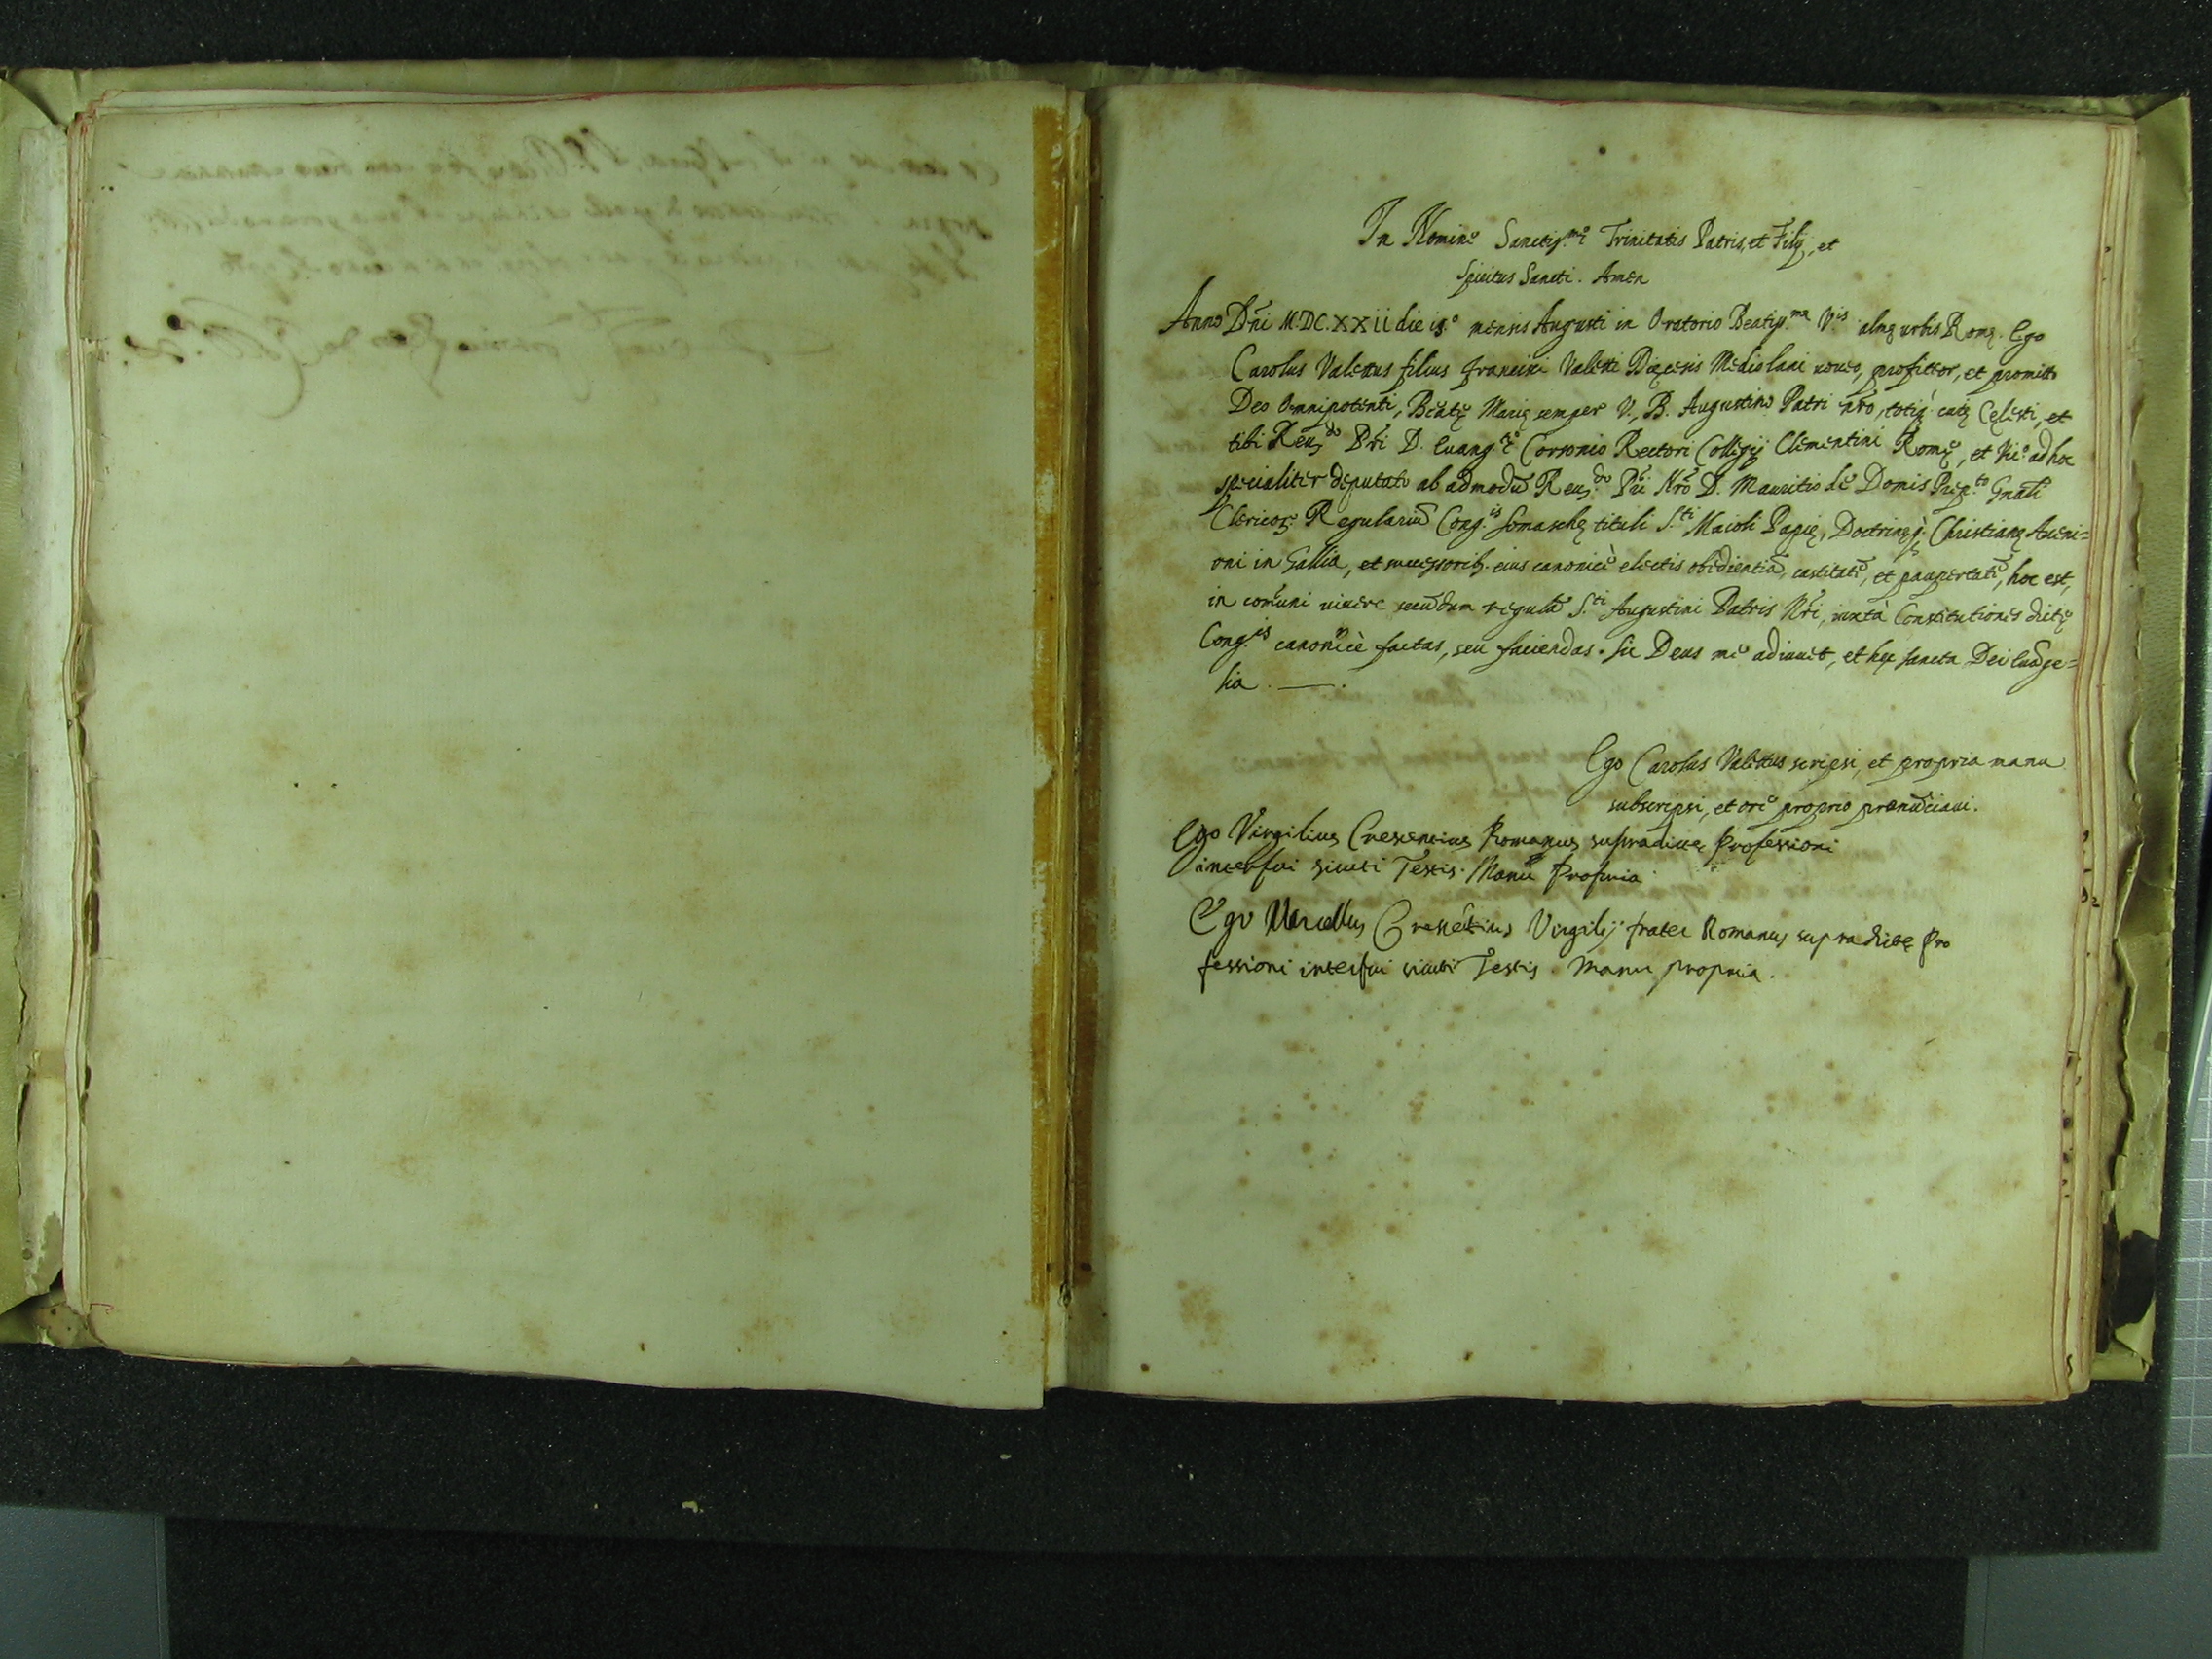 In Nomine Sanctiss.mę Trinitatis Patris, et Filij, et
spiritus Sancti. Amen
Anno Dñi M.DC.XXII die 15.º mensis Augusti in Oratorio Beatiss.ma V.is almę urbis Romę. Ego
Carolus Valettus filius francisci Valetti Dięcesis Mediolani uoueo, profiteor, et promitto
Deo Omnipotenti, Beatę Marię semper V., B. Augustino Patri nr̃o, totiq. curę Cęlesti, et
tibi Reu.do Pr̃i D. Euang.ta Corsonio Rectori Collegij Clementini Romę, et Vic.º ad hoc
specialiter deputato ab admodũ Reu.do Pr̃i Nr̃o D. Mauritio de Domis Prep.to Gñali
Clericoꝝ Regulariũ Cong.is somaschę tituli S.ti Maioli Papię, Doctrinęq. Christianę Aueni=
oni in Gallia, et successorib. eius canonicè electis obedientiã, castitatẽ, et paupertatẽ, hoc est,
in com̃uni uiuere secũdum regulã S.ti Augustini Patris Nr̃i, iuxtà Constitutiones dictę
Cong.is canonicè factas, seu faciendas. sic Deus me adiuuet, et hęc sancta Dei Euãge=
lia. —.
Ego Carolus Valettus scripsi, et propria manu
subscripsi, et ore proprio pronũciaui.
Ego Virgilius Crescentius Romanus supradictę Professioni
interfui sicuti Testis. Manu Propria
Ego Marcellus Crescẽtius Virgilij frater Romanus supradictę Pro
fessioni interfui sicuti Testis. Manu propria.